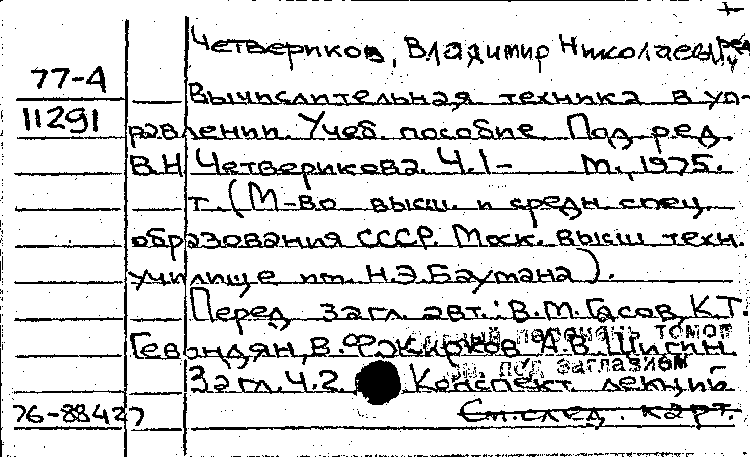 Четвериков, Владимир Николаевич ред.
77-4
Вычислительная техника в уп-
11291
равлении. Учеб. пособие. Под ред.
В.Н. Четверикова. Ч.1- М., 1975.
т. (М-во высш. и средн. спец.
образования СССР. Моск. высш. техн.
училище им. Н.Э.Баумана).
Перед загл. авт.: В.М.Гасов, К.Т.
перечень томов
В. А.В. Шигин
под заглавием
Загл. Ч.2. Конспект лекций
76-88427 См. след. карт.